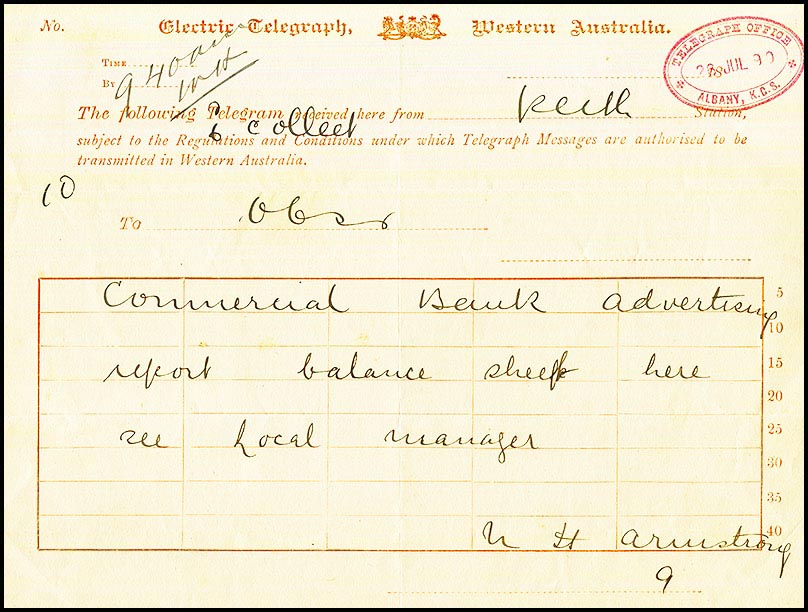 No. Electric Telegraph, Western Australia.
TELEGRAPH OFFICE
JUL 90
ALBANY, K.G.S.
TIME 9 40 am
BY
The following Telegram received here from Perth Station,
Collect
subject to the Regulations and Conditions under which Telegraph Messages are authorised to be
transmitted in Western Australia.
10
To
Commercial Bank advertising
5
10
report balance sheet here
15
20
see Local manager
25
30
35
40
H Armstrong
9